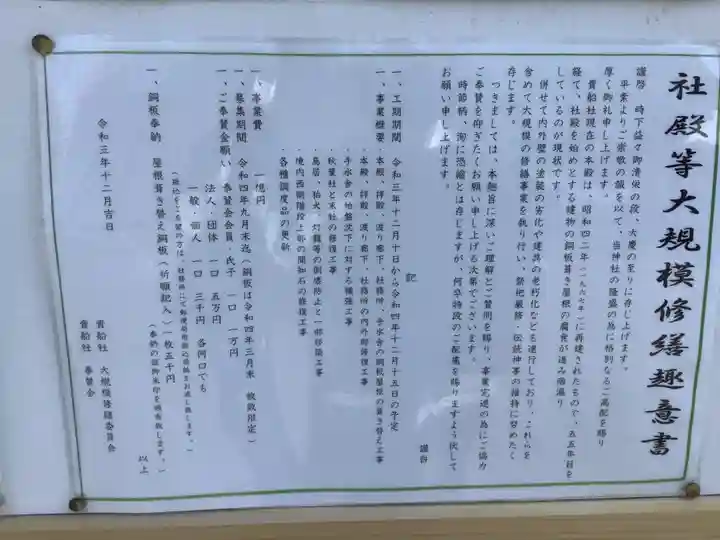 社殿等大規模修繕趣意書
謹啓 時下益々御清栄の段、大慶の至りに存じ上げます。
平素よりご崇敬の誠を以て、当神社の隆盛の為に格別なるご高配を賜り
厚く御礼申し上げます。
貴船社現在の本殿は、昭和四二年(一九六七年)に再建されたもので、五五年目を
経て、社殿を始めとする建物の銅板葺き屋根の腐食が進み雨漏り
しているのが現状です。
併せて内外壁の塗装の劣化や建具の老朽化なども進行しており、これらを
含めて大規模の修繕事業を執り行い、祭祀厳修・伝統神事の維持に努めたく
存じます。
つきましては、本趣旨に深いご理解とご賛同を賜り、事業完遂の為にご協力
ご奉賛を仰ぎたくお願い申し上げる次第でございます。
時節柄、洵に恐縮とは存じますが、何卒特段のご配慮を賜りますよう伏して
お願い申し上げます。
謹白
記
一、工期期間 令和三年十二月十日から令和四年十二月十五日の予定
一、事業概要 ・本殿、拝殿、渡り廊下、社務所、手水舎の銅板屋根の葺き替え工事
・本殿、拝殿、渡り廊下、社務所の内外部修復工事
・手水舎の地盤沈下に対する補強工事
・秋葉社と末社の修復工事
・鳥居、狛犬、灯籠等の倒壊防止と一部移設工事
・境内西側階段上部の間知石の修復工事
・各種調度品の更新
一、事業費 一億円
一、募集期間 令和四年九月末迄(銅板は令和四年三月末 枚数限定)
一、ご奉賛金願い 奉賛会会員・氏子 一口 一万円
法人・団体 一口 五万円
一般・個人 一口 三千円 各何口でも
(振込をご希望の方は、社務所にて郵便局用振込用紙をお渡し致します。)
一、銅板奉納 屋根葺き替え銅板(祈願記入)一枚五千円
(奉納の証御朱印を頒布致します。)
以上
令和三年十二月吉日
貴船社 大規模修繕委員会
貴船社 奉賛会